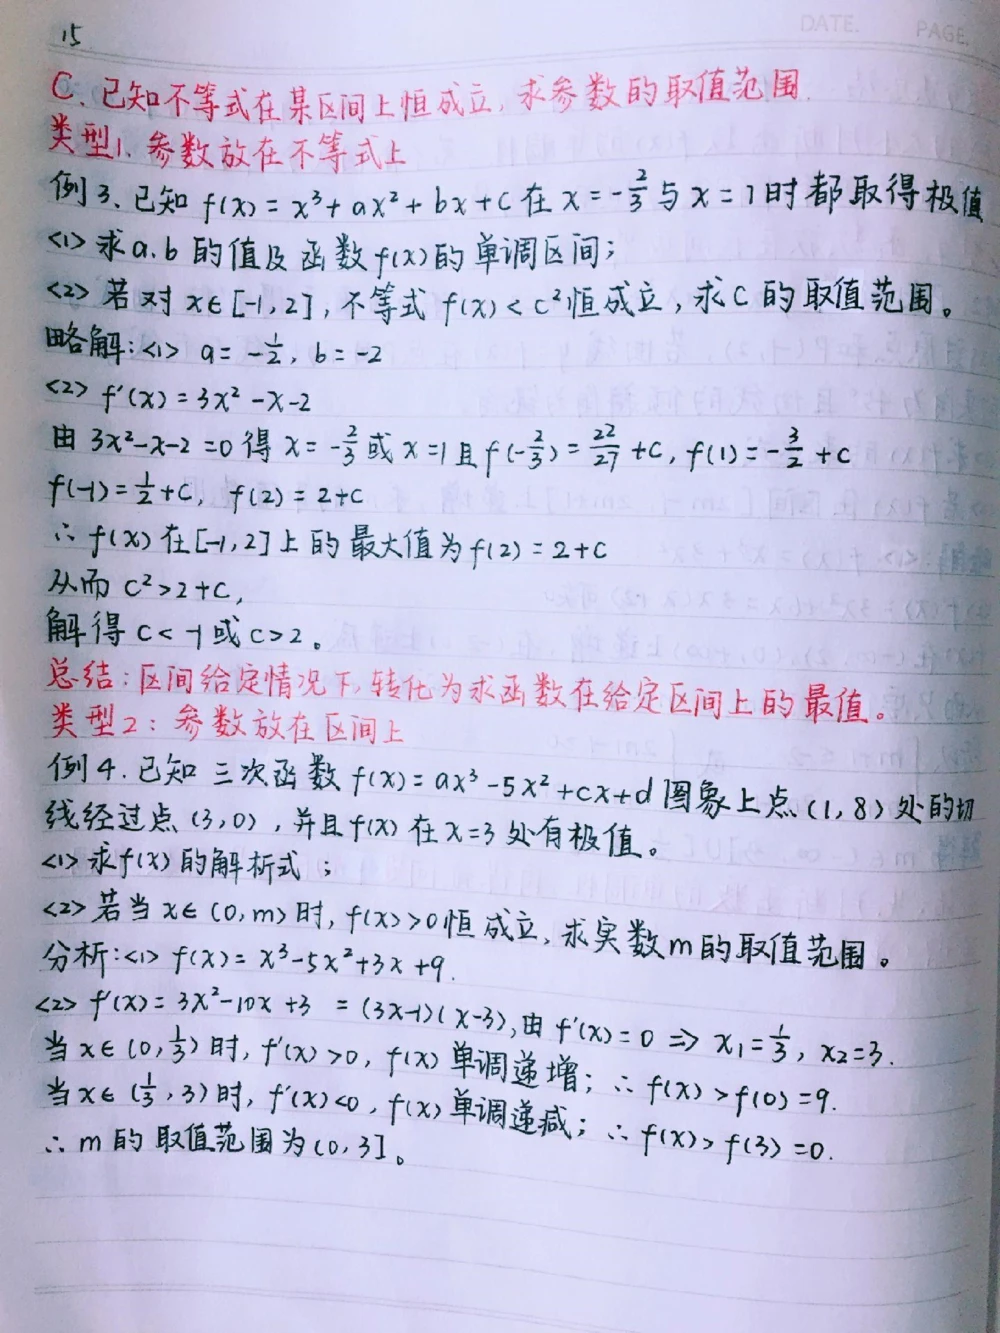 DATE. PAGE.
15
C. 已知不等式在某区间上恒成立,求参数的取值范围.
类型1、参数放在不等式上
例3、已知 f(x)=x³+ax²+bx+c 在 x=-2/3 与 x=1时都取得极值
<1> 求a.b 的值及函数f(x)的单调区间;
<2> 若对 x∈[-1,2],不等式 f(x)<c²恒成立,求C的取值范围。
略解:<1> a=-1/2, b=-2
<2> f'(x)=3x²-x-2
由 3x²-x-2=0 得 x=-2/3 或 x=1且 f(-2/3)=22/27+c, f(1)=-3/2+c
f(-1)=1/2+c, f(2)=2+c
∴ f(x) 在[-1,2]上的最大值为f(2)=2+c
从而 c²>2+c,
解得 c<-1或c>2。
总结:区间给定情况下,转化为求函数在给定区间上的最值。
类型2:参数放在区间上
例4.已知三次函数 f(x)=ax³-5x²+cx+d 图象上点(1,8)处的切
线经过点(3,0),并且f(x)在x=3处有极值。
<1>求f(x)的解析式;
<2>若当 x∈(0,m)时,f(x)>0恒成立,求实数m的取值范围。
分析:<1> f(x)=x³-5x²+3x+9.
<2> f'(x)=3x²-10x+3 =(3x-1)(x-3),由 f'(x)=0 ⇒ x₁=1/3, x₂=3.
当 x∈(0,1/3)时,f'(x)>0,f(x)单调递增;∴f(x)>f(0)=9.
当x∈(1/3,3)时,f'(x)<0,f(x)单调递减;∴f(x)>f(3)=0.
∴ m的取值范围为(0,3]。